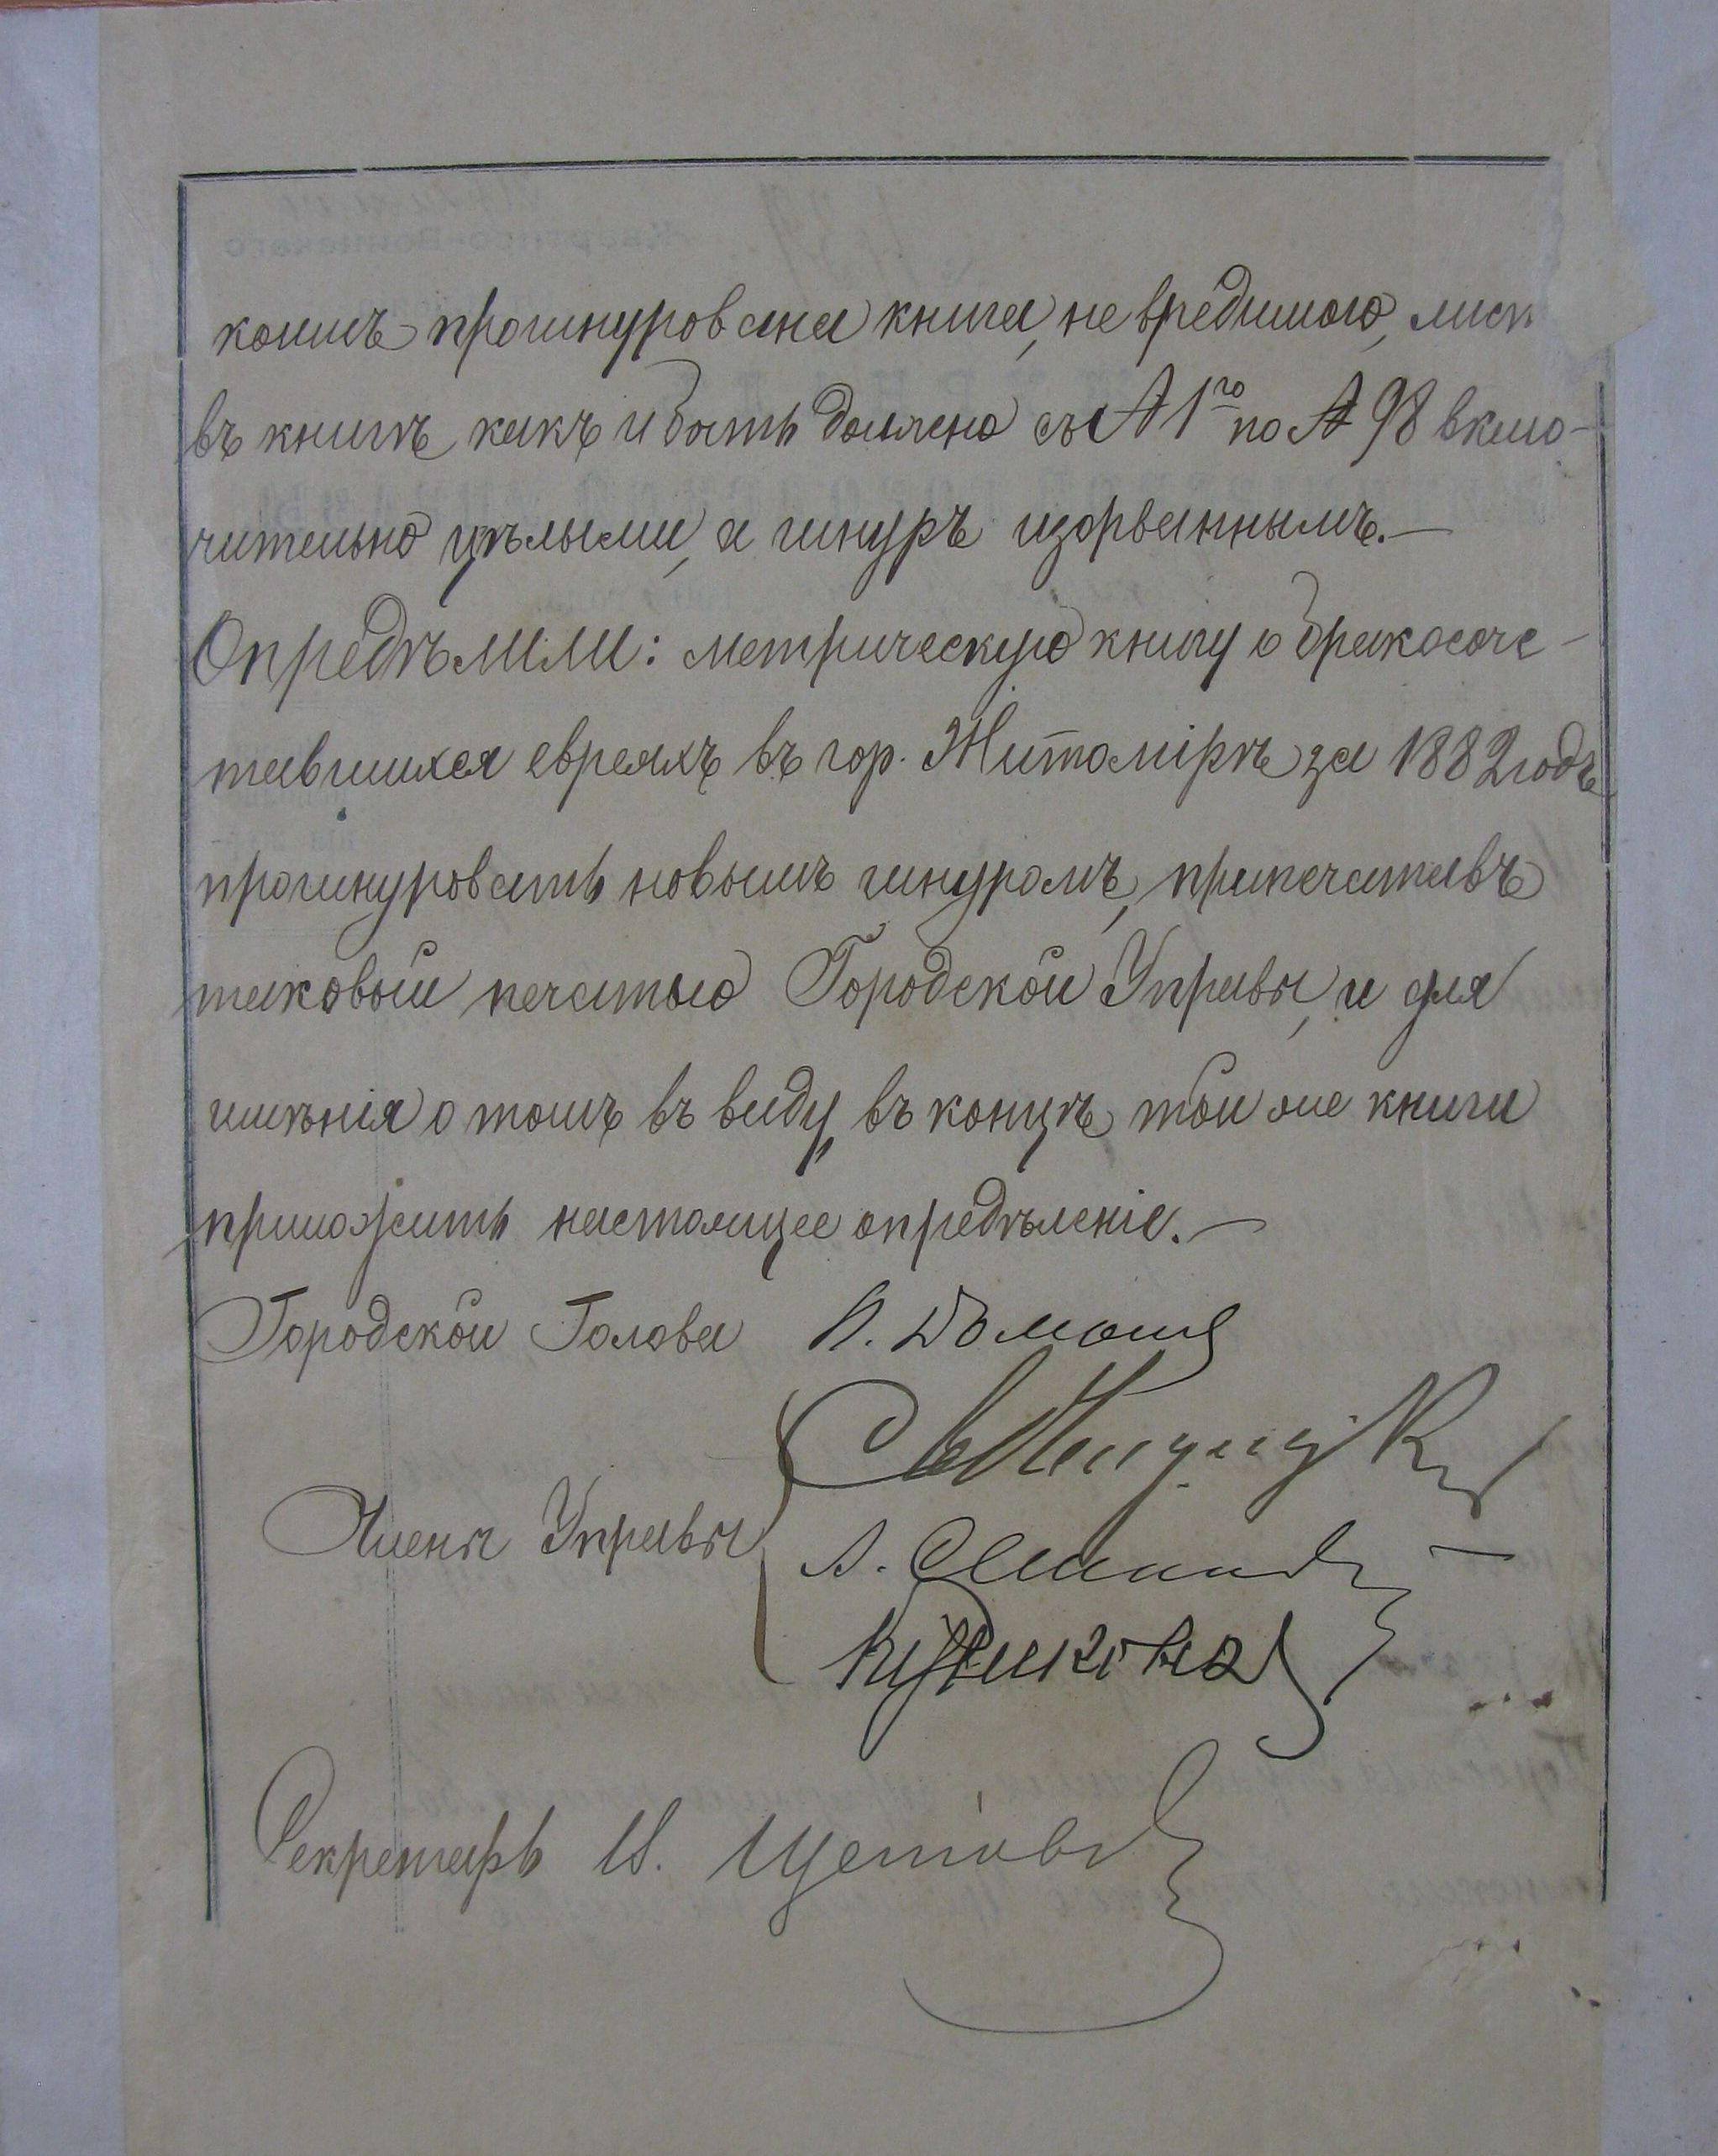 коимъ прошнурована книга, невредимою, лист
въ книгѣ какъ и быть должно съ № 1го по № 98 вклю-
чительно цѣлыми, а шнуръ изорваннымъ.—
Опредѣлили: метрическую книгу о бракосоче-
тавшихся евреяхъ въ гор. Житомірѣ за 1882 годъ
прошнуровать новымъ шнуромъ, припечатавъ
таковый печатью Городской Управы, и для
имѣнія о томъ въ виду, въ концѣ той же книги
приложить настоящее опредѣленіе.—
Городской Голова
Члены Управы
Секретарь